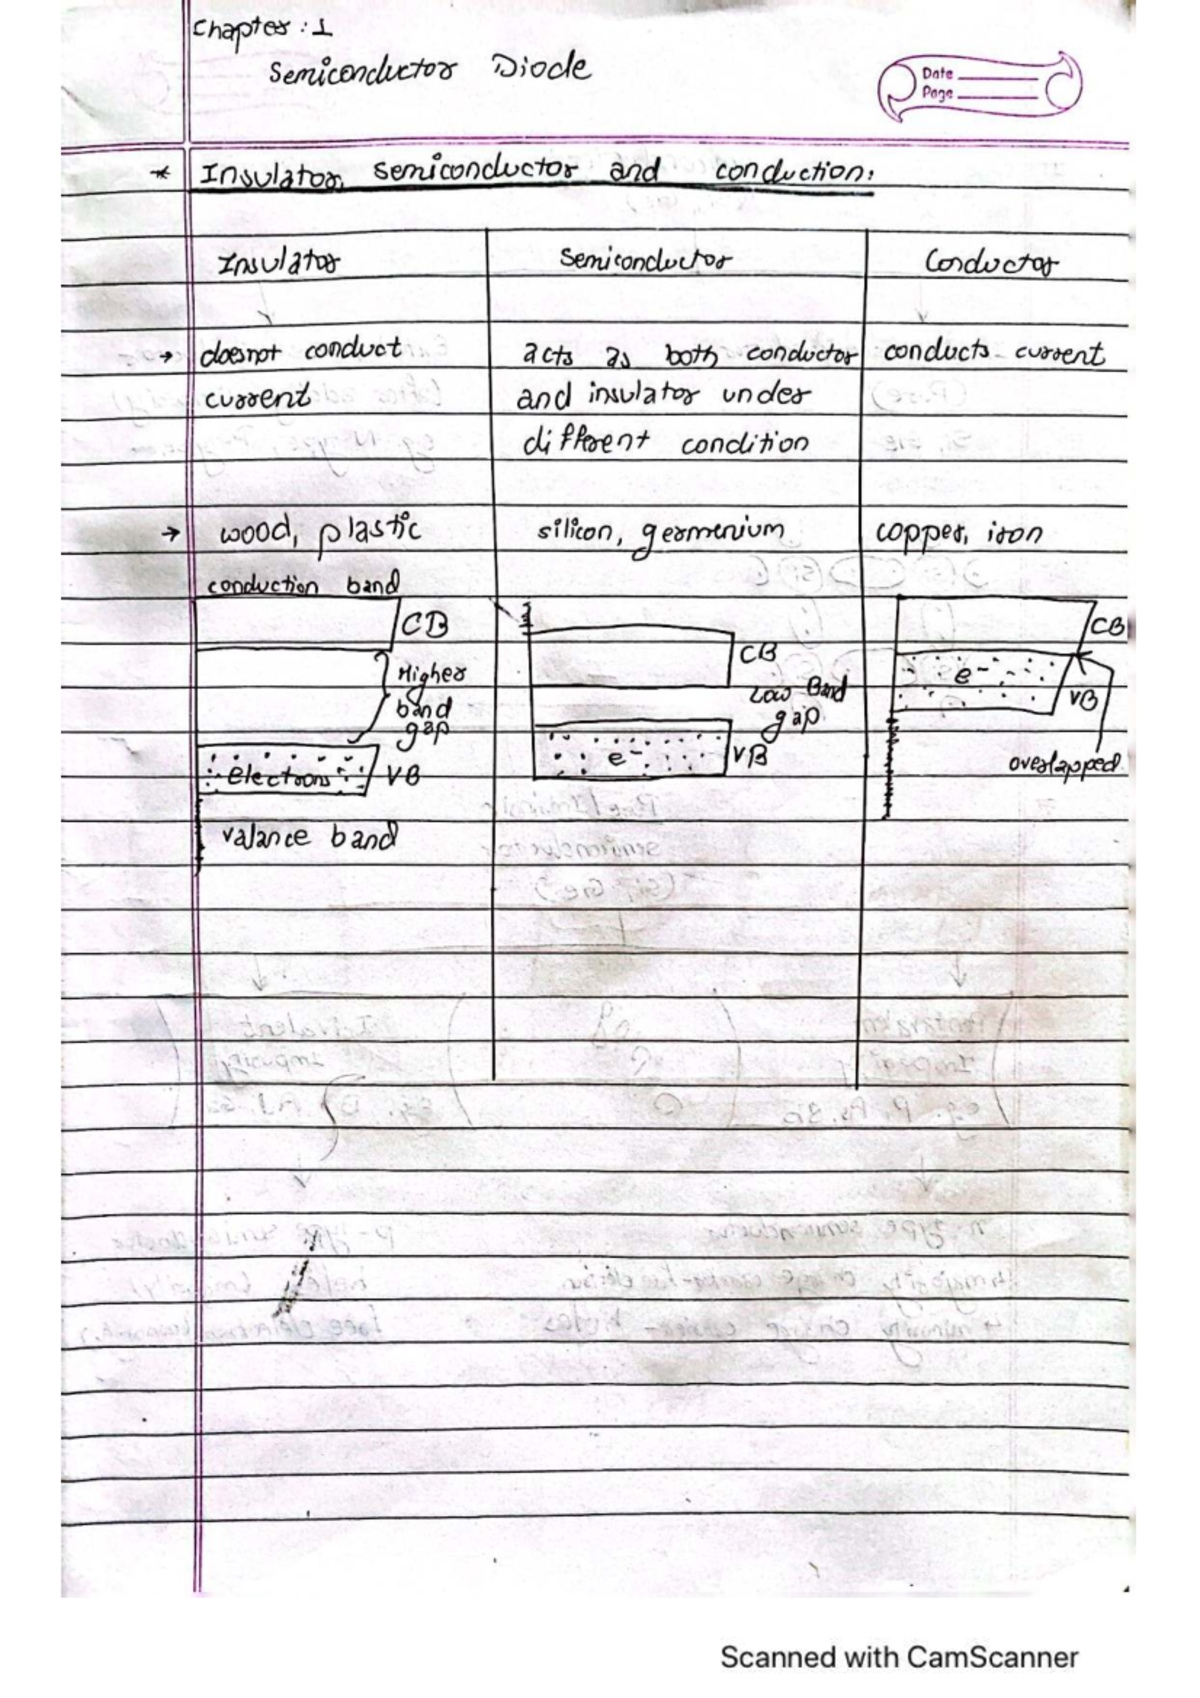 Chapter : 1
Semiconductor Diode
Date
Page
* Insulator, semiconductor and conduction:
Insulator Semiconductor Conductor
→ doesnot conduct acts as both conductor conducts current
current and insulator under
different condition
→ wood, plastic silicon, germenium copper, iron
conduction band
CB
CB
CB
Higher
band
gap
Low Band
gap
e-
VB
electrons VB
e- VB
overlapped
valance band
Scanned with CamScanner